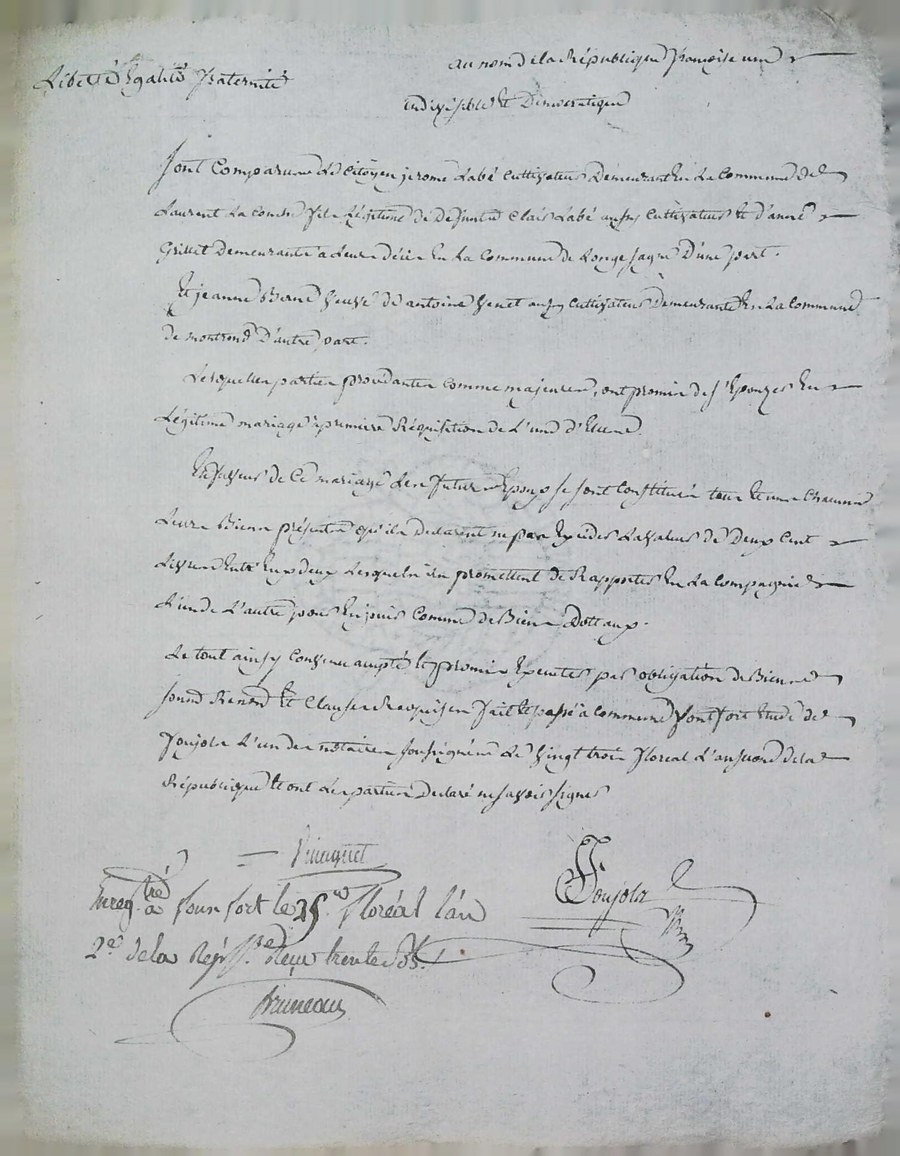 Liberté Egalité Fraternité
au nom de la République françoise une
indivisible et Démocratique
Sont Comparus Le Citoyen jerome Labé Cultivateur Demeurant En La Commune de
Laurent La Conche fils Légitime de Defunt Clair Labé aussy Cultivateur Et d'anne
Grillet Demeurants a Leurs décès En La Commune de Longesagne D'une part.
Et jeanne Berne Veuve de antoine Venet aussy Cultivateur Demeurante En La Commune
de montrond D'autre part.
Lesquelles parties procedantes Comme majeures, ont promis de s'Epouzer En
Légitime mariage a premiere Réquisition de L'une d'Elles
En faveur de Ce mariage Les futurs Epoux se sont Constitués tous Et uns Chacuns
Leurs Biens présents qu'ils déclarent ne pas Exceder La valeur de Deux Cent
Livres Entre Eux deux Lesquels ils promettent de Rapporter En La Compagnie
L'un de L'autre pour En jouir Comme de Biens Dottaux.
Le tout ainsy Convenu accepté Et promis Executer par obligation de Biens
soumo Renons Et Clauses Requises fait Et passé a Commune fontfort Etude de
Joujola L'un des notaires soussignés Le Vingt trois floreal L'an second de la
République Et ont Les parties Declaré ne savoir signer
Joujola
Enreg.tré a foun fort le 25 floréal l'an
2e de la Rép. Reçu trente
Bruneau